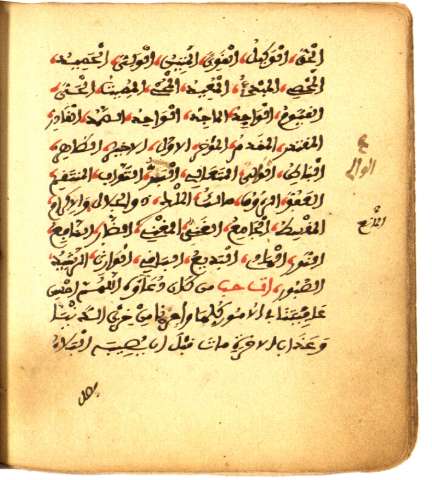 الحق الوكيل القوي المتين الولي الحميد
المحصي المبدئ المعيد المحي المميت الحي
القيوم الواجد الماجد الواحد الصمد القادر
المقتدر المقدم المؤخر الاول الاخر الظاهر
الوالي
الباطن المتعالي البر التواب المنتقم
العفو الرءوف مالك الملك ذو الجلال والاكرام
المانع
المقسط الجامع الغني المغني الضار النافع
النور الهادي البديع الباقي الوارث الرشيد
الصبور من كان دعاوه اللهم احسن
عاقبتنا في الامور كلها واجرنا من خزي الدنيا
وعذاب الاخرة مات قبل ان يصيبه البلاء